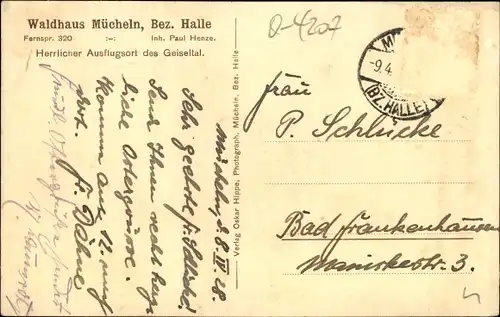 Waldhaus Mücheln, Bez. Halle
Fernspr. 320 :-: Inh. Paul Henze.
Herrlicher Ausflugsort des Geiseltal.
D-4207
-9.4.
(BZ. HALLE)
Mücheln, 8. IV. 28.
Sehr geehrte Fr. Schlücke!
Sende Ihnen recht herz-
liche Ostergrüsse.
Komme am 12. auf
dort. Fr. Dähne
Verlag Oskar Hippe, Photograph, Mücheln, Bez. Halle
Frau
P. Schlücke
Bad Frankenhausen
str. 3.